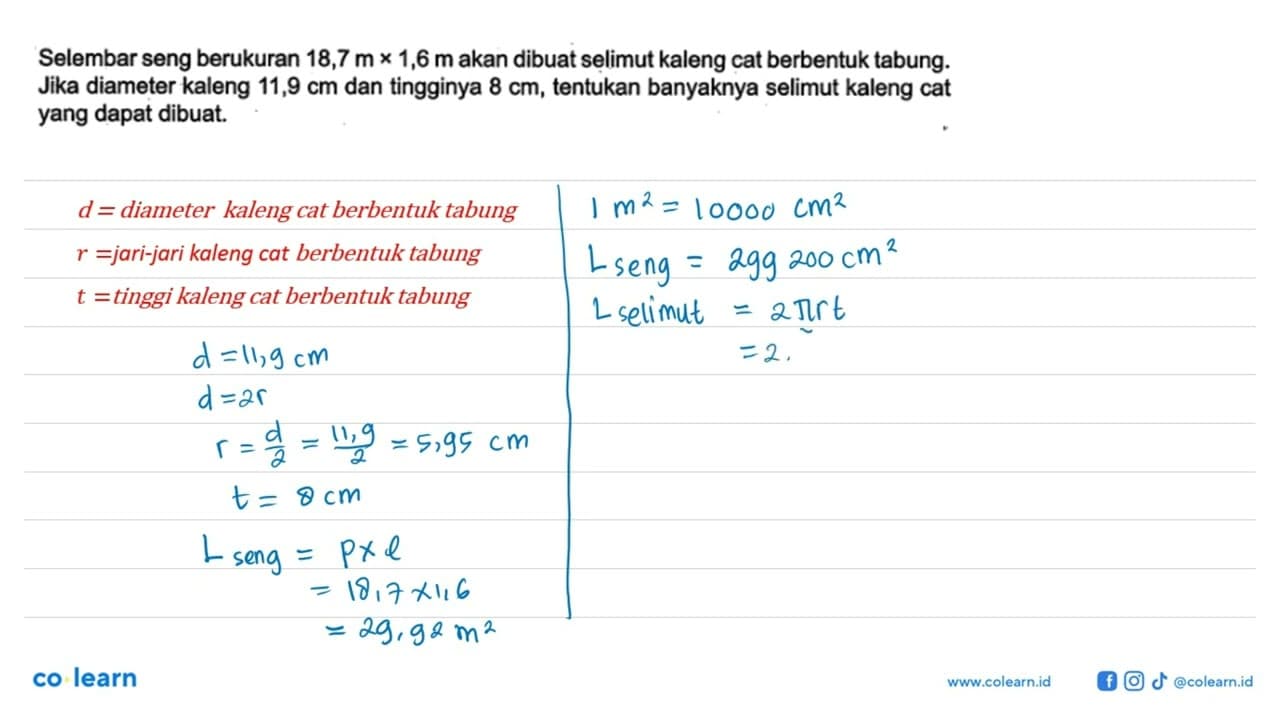 Selembar seng berukuran 18,7 m × 1,6 m akan dibuat selimut kaleng cat berbentuk tabung.
Jika diameter kaleng 11,9 cm dan tingginya 8 cm, tentukan banyaknya selimut kaleng cat
yang dapat dibuat.
d = diameter kaleng cat berbentuk tabung
r =jari-jari kaleng cat berbentuk tabung
t =tinggi kaleng cat berbentuk tabung
d = 11,9 cm
d = 2r
r = d/2 = 11,9/2 = 5,95 cm
t = 8 cm
L seng = p × l
= 18,7 × 1,6
= 29,92 m²
1 m² = 10000 cm²
L seng = 299 200 cm²
L selimut = 2πrt
= 2.
co·learn
www.colearn.id
@colearn.id